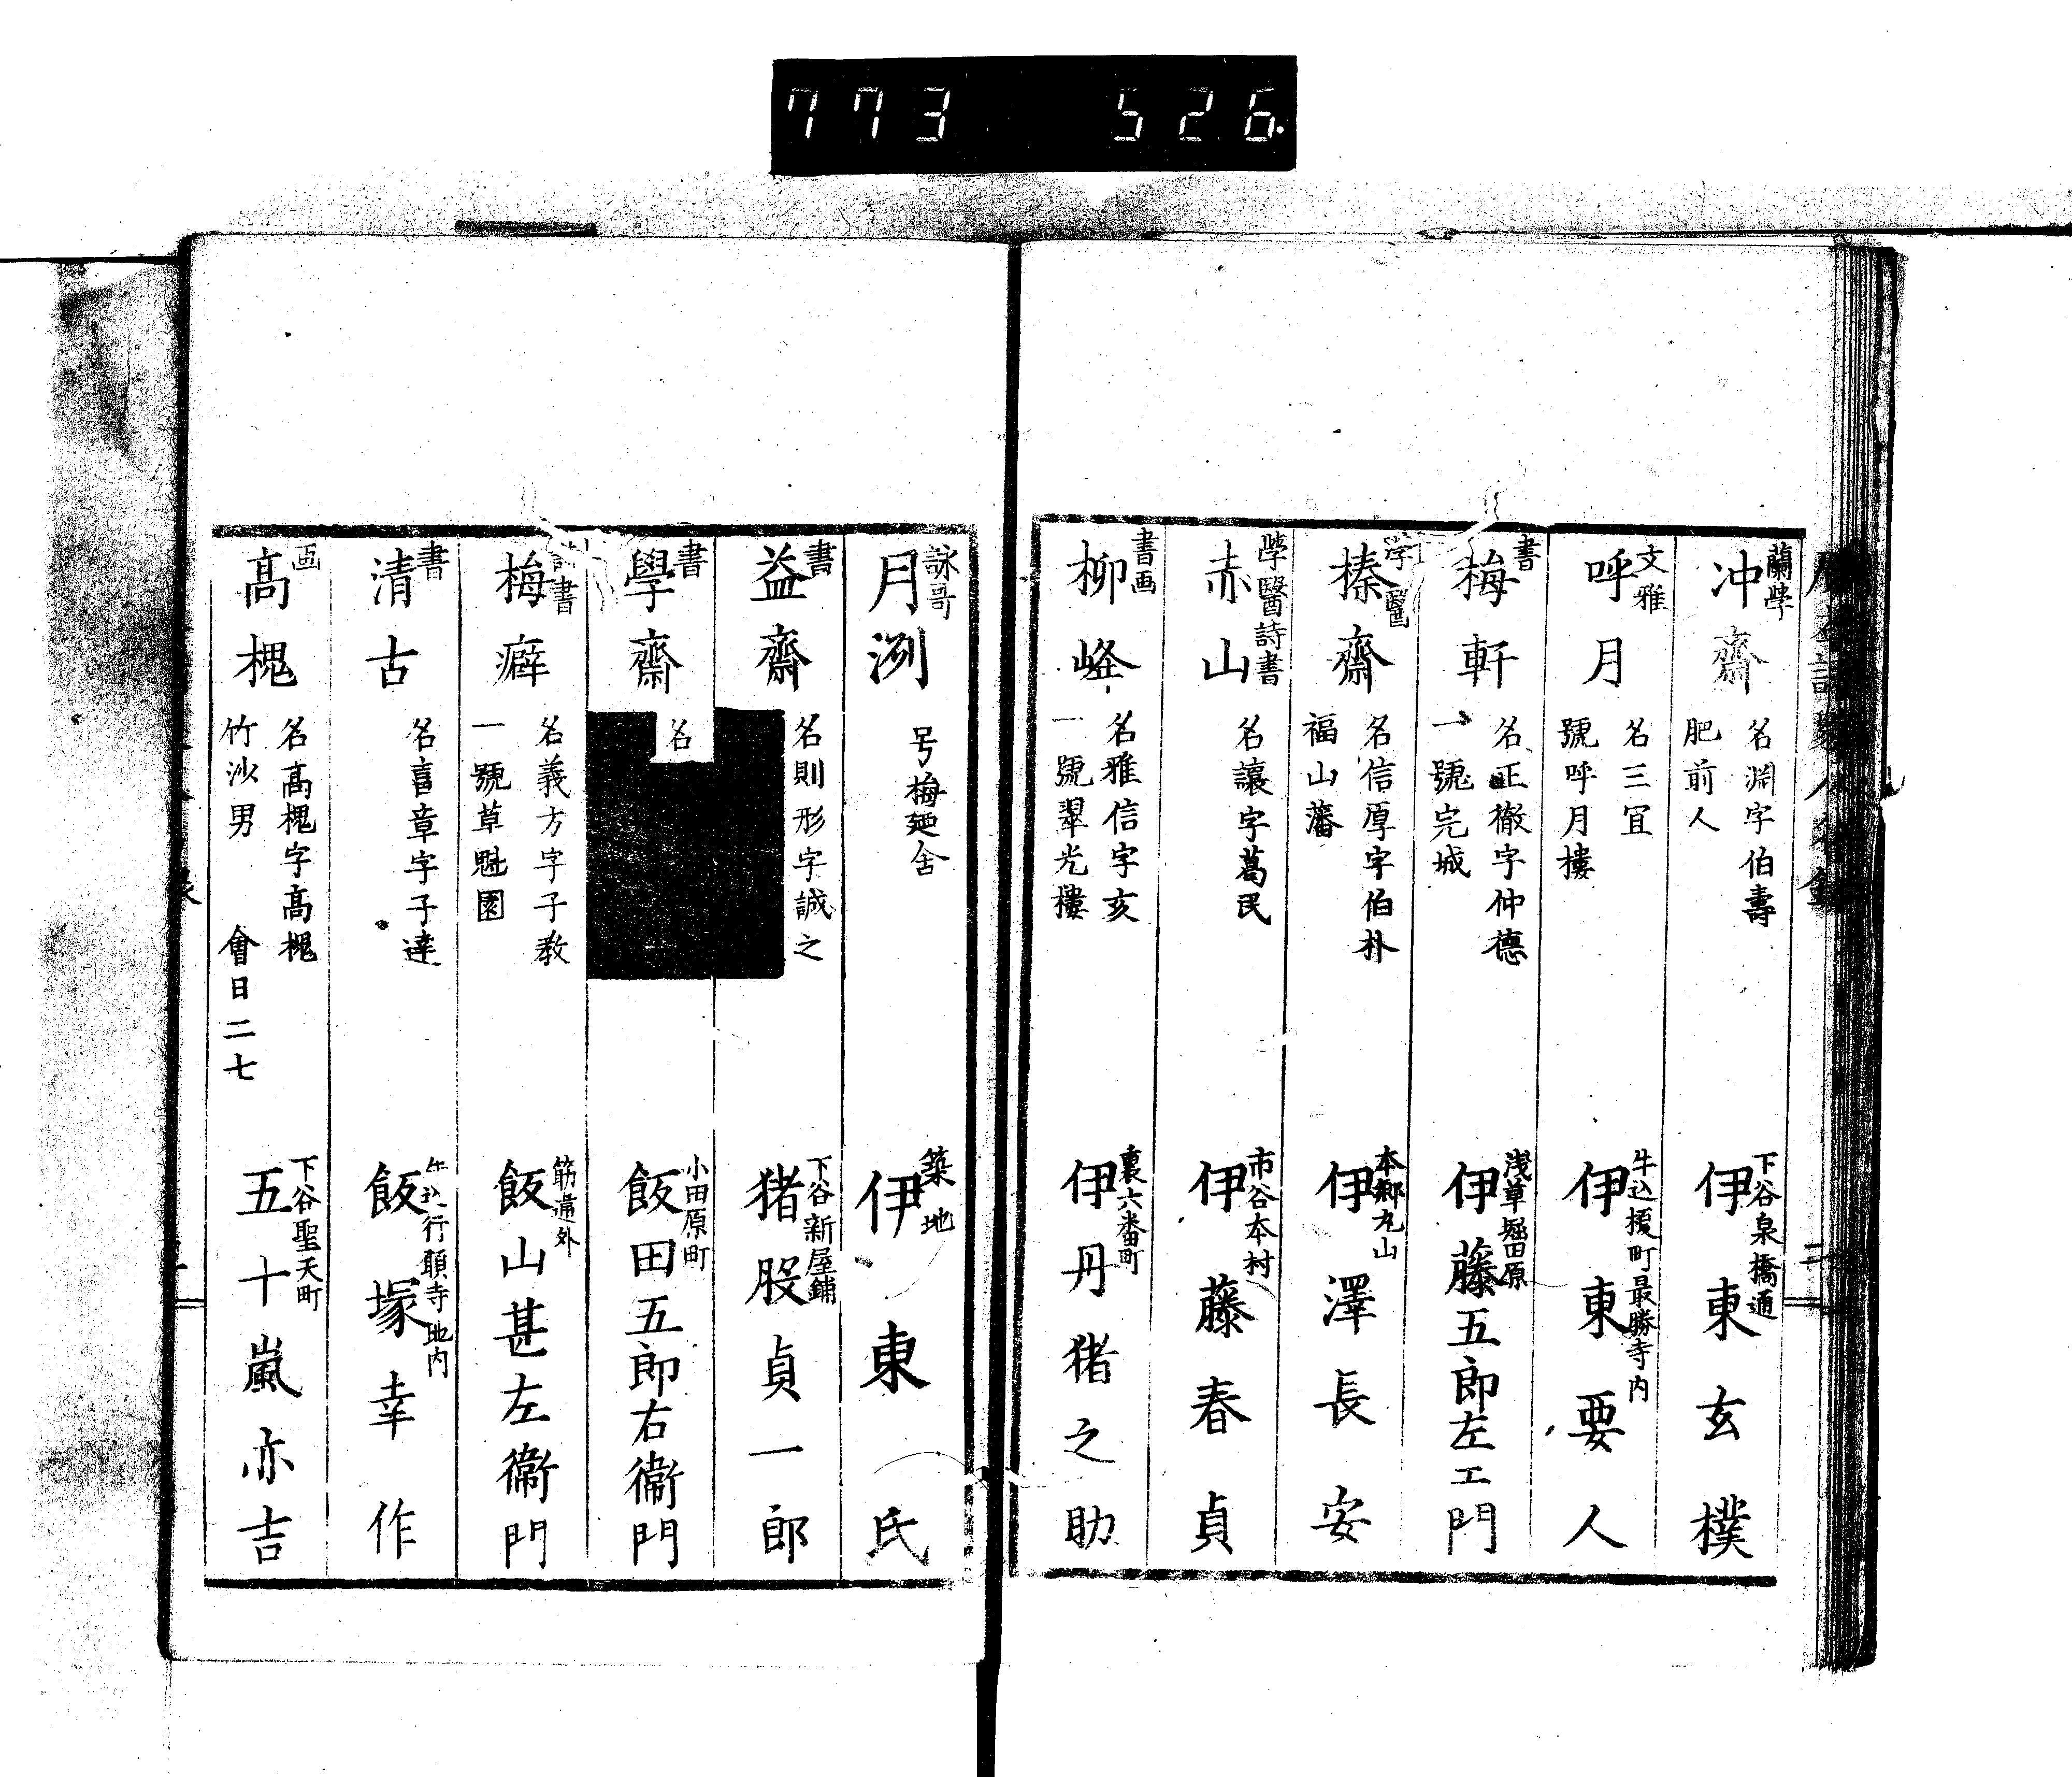 773 526.
蘭學
冲齋
名淵字伯壽
肥前人
下谷泉橋通
伊東玄樸
文雅
呼月
名三宜
號呼月樓
牛込榎町最勝寺内
伊東要人
書
梅軒
名正徹字仲德
一號完城
浅草堀田原
伊藤五郎左エ門
學醫
榛齋
名信厚字伯朴
福山藩
本郷丸山
伊澤長安
學醫詩書
赤山
名讓字萬民
市谷本村
伊藤春貞
書画
柳峰
名雅信字亥
一號翠光樓
裏六番町
伊丹猪之助
詠哥
月渕
号梅廼舎
築地
伊東氏
書
益齋
名則形字誠之
下谷新屋鋪
猪股貞一郎
書
學齋
名
小田原町
飯田五郎右衞門
詩書
梅癖
名義方字子教
一號草魁園
筋違外
飯山甚左衞門
書
清古
名喜章字子達
牛込行願寺地内
飯塚幸作
画
高槐
名高槐字高槐
竹沙男 會日二七
下谷聖天町
五十嵐亦吉